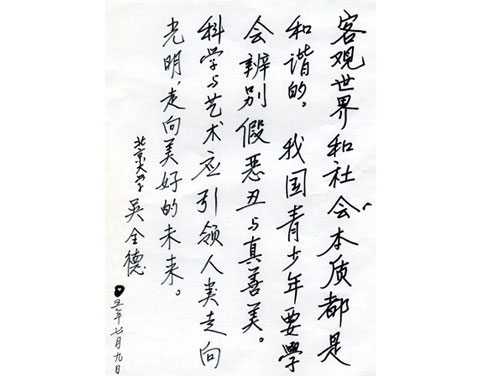 客观世界和社会本质都是
和谐的。我国青少年要学
会辨别假恶丑与真善美。
科学与艺术应引领人类走向
光明，走向美好的未来。
北京大学
吴全德
五年七月九日